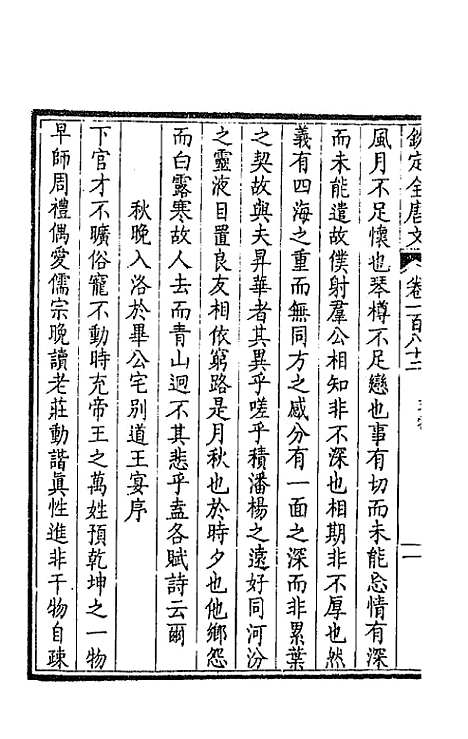 欽定全唐文 卷一百八十二
風月不足懷也琴樽不足戀也事有切而未能忘情有深
而未能遣故僕射羣公相知非不深也相期非不厚也然
義有四海之重而無同方之感分有一面之深而非累葉
之契故與夫昇華者其異乎嗟乎積潘楊之遠好同河汾
之靈液目置良友相依窮路是月秋也於時夕也他鄉怨
而白露寒故人去而青山迥不其悲乎盍各賦詩云爾
秋晚入洛於畢公宅別道王宴序
下官才不曠俗寵不動時充帝王之萬姓預乾坤之一物
早師周禮偶愛儒宗晚讀老莊動諧眞性進非干物自疎